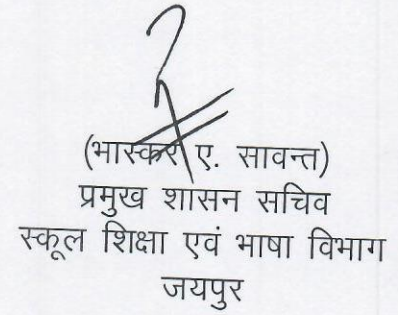 (भास्कर ए. सावन्त)
प्रमुख शासन सचिव
स्कूल शिक्षा एवं भाषा विभाग
जयपुर